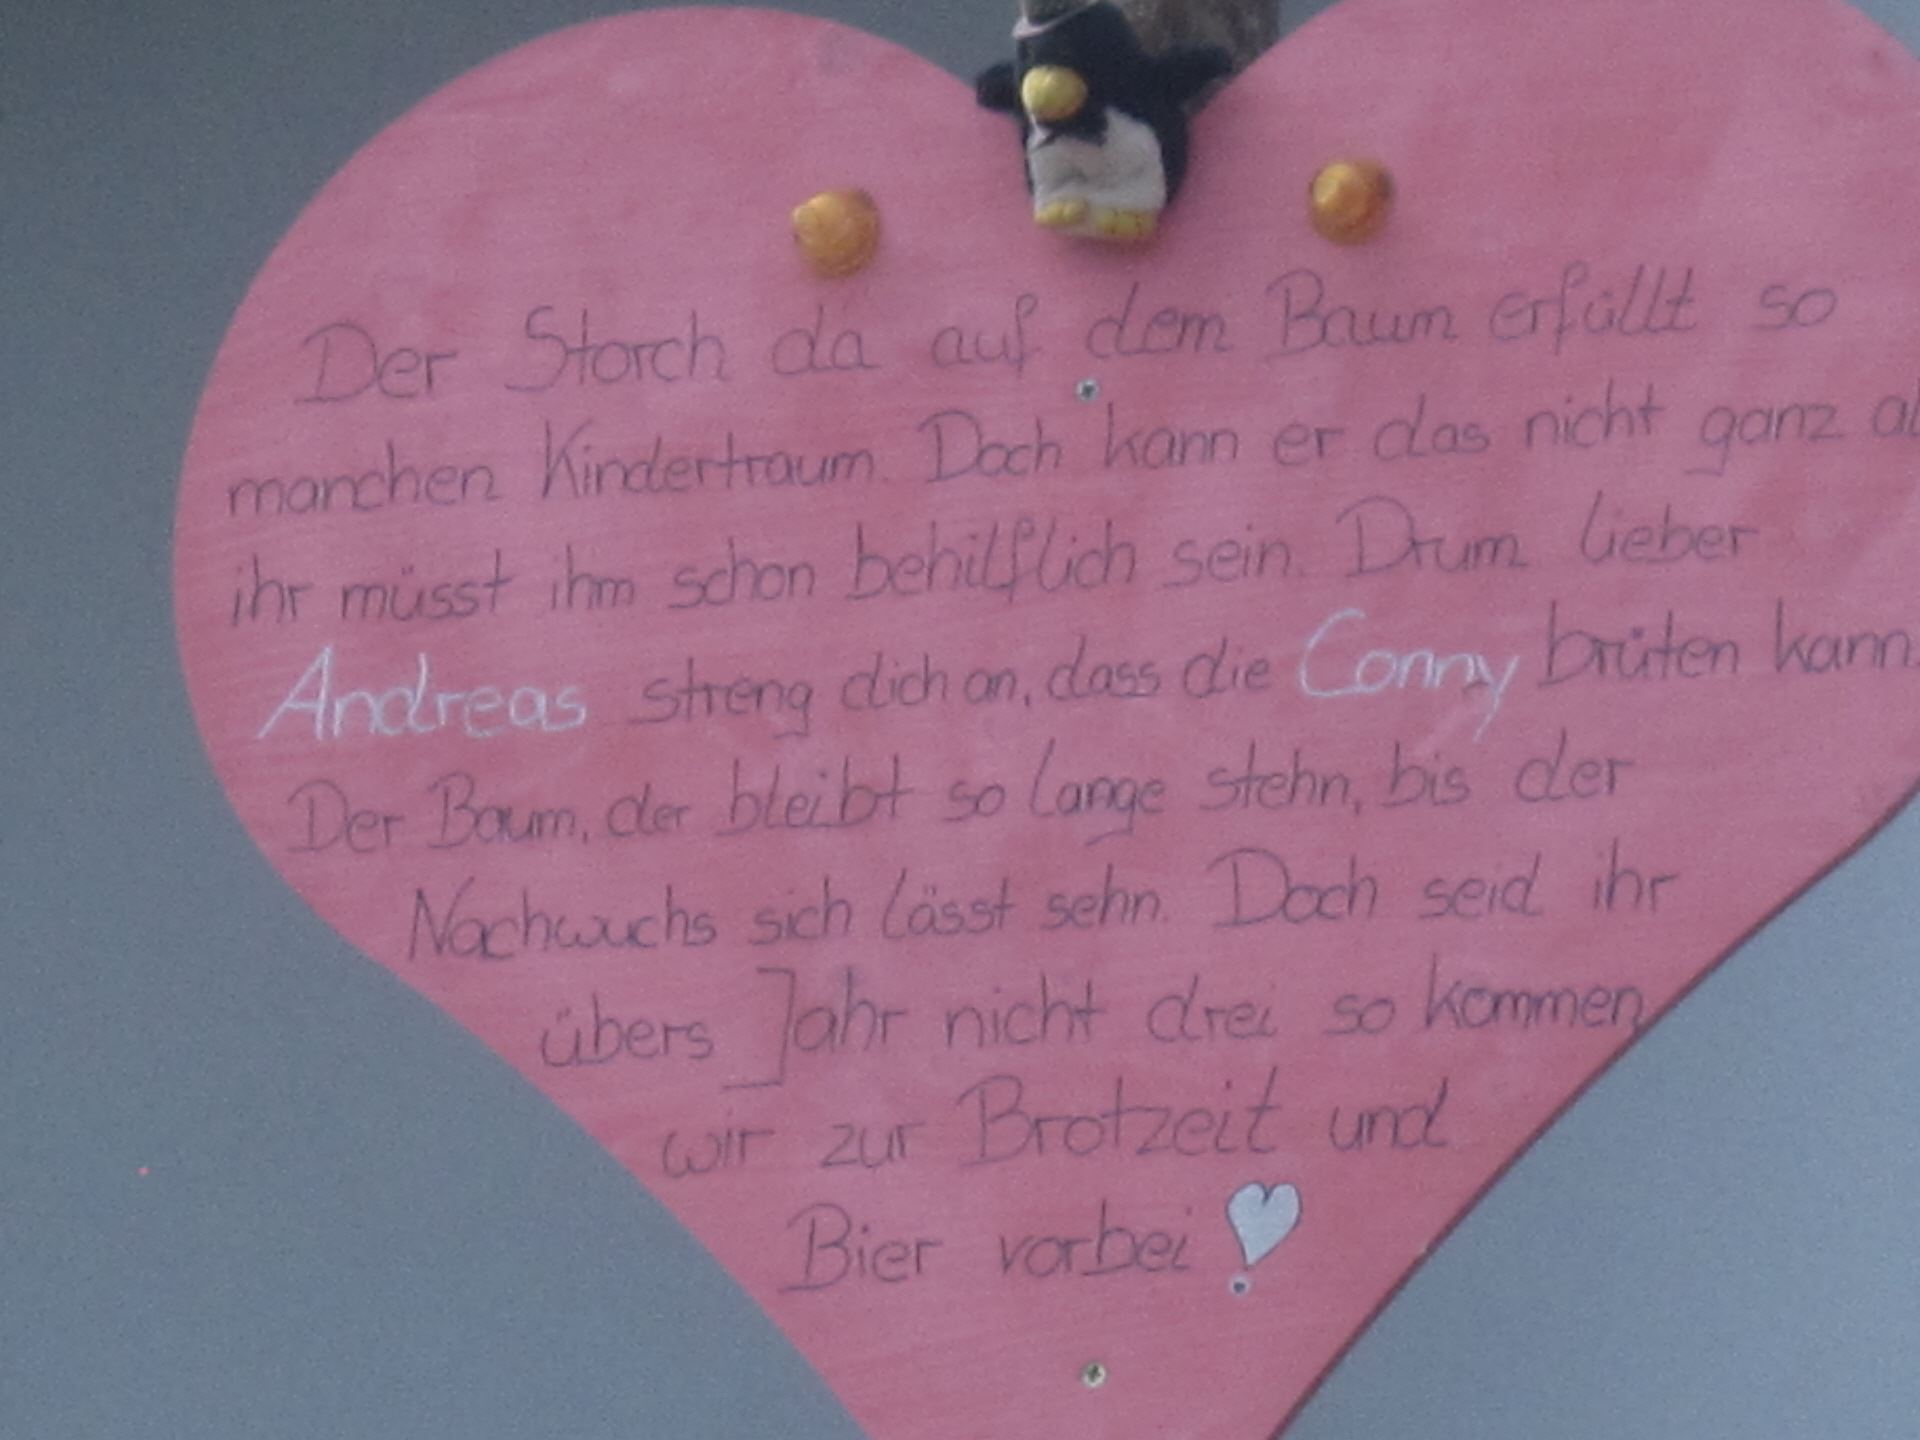 Der Storch da auf dem Baum erfüllt so
manchen Kindertraum. Doch kann er das nicht ganz al
ihr müsst ihm schon behilflich sein. Drum lieber
Andreas streng dich an, dass die Conny brüten kann.
Der Baum, der bleibt so lange stehn, bis der
Nachwuchs sich lässt sehn. Doch seid ihr
übers Jahr nicht drei so kommen
wir zur Brotzeit und
Bier vorbei